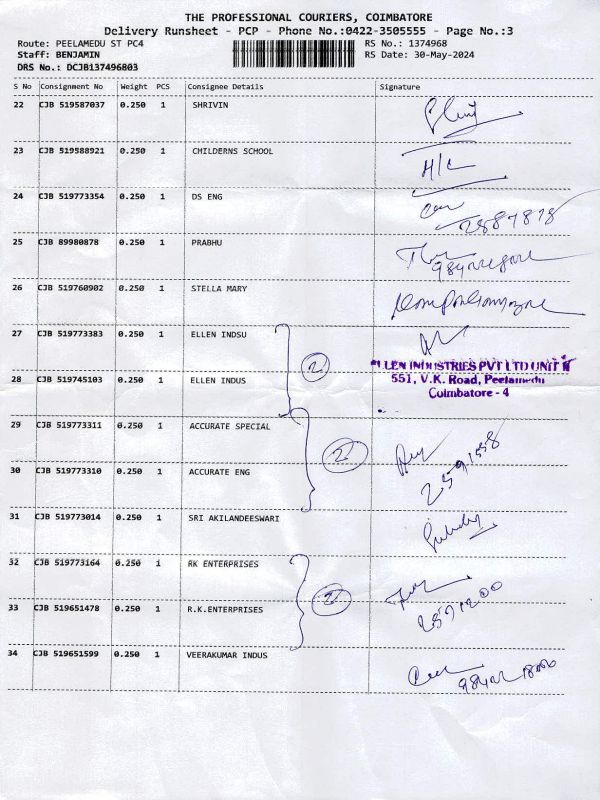 THE PROFESSIONAL COURIERS, COIMBATORE
Delivery Runsheet - PCP - Phone No.:0422-3505555 - Page No.:3
Route: PEELAMEDU ST PC4 RS No.: 1374968
Staff: BENJAMIN RS Date: 30-May-2024
DRS No.: DCJB137496803
S No Consignment No Weight PCS Consignee Details Signature
22 CJB 519587037 0.250 1 SHRIVIN
23 CJB 519588921 0.250 1 CHILDERNS SCHOOL
24 CJB 519773354 0.250 1 DS ENG
25 CJB 89980878 0.250 1 PRABHU
26 CJB 519760902 0.250 1 STELLA MARY
27 CJB 519773383 0.250 1 ELLEN INDSU
2
ELLEN INDUSTRIES PVT LTD UNIT
551, V.K. Road, Peelamedu
Coimbatore - 4
28 CJB 519745103 0.250 1 ELLEN INDUS
29 CJB 519773311 0.250 1 ACCURATE SPECIAL
2
30 CJB 519773310 0.250 1 ACCURATE ENG
31 CJB 519773014 0.250 1 SRI AKILANDEESWARI
32 CJB 519773164 0.250 1 RK ENTERPRISES
2
33 CJB 519651478 0.250 1 R.K.ENTERPRISES
34 CJB 519651599 0.250 1 VEERAKUMAR INDUS